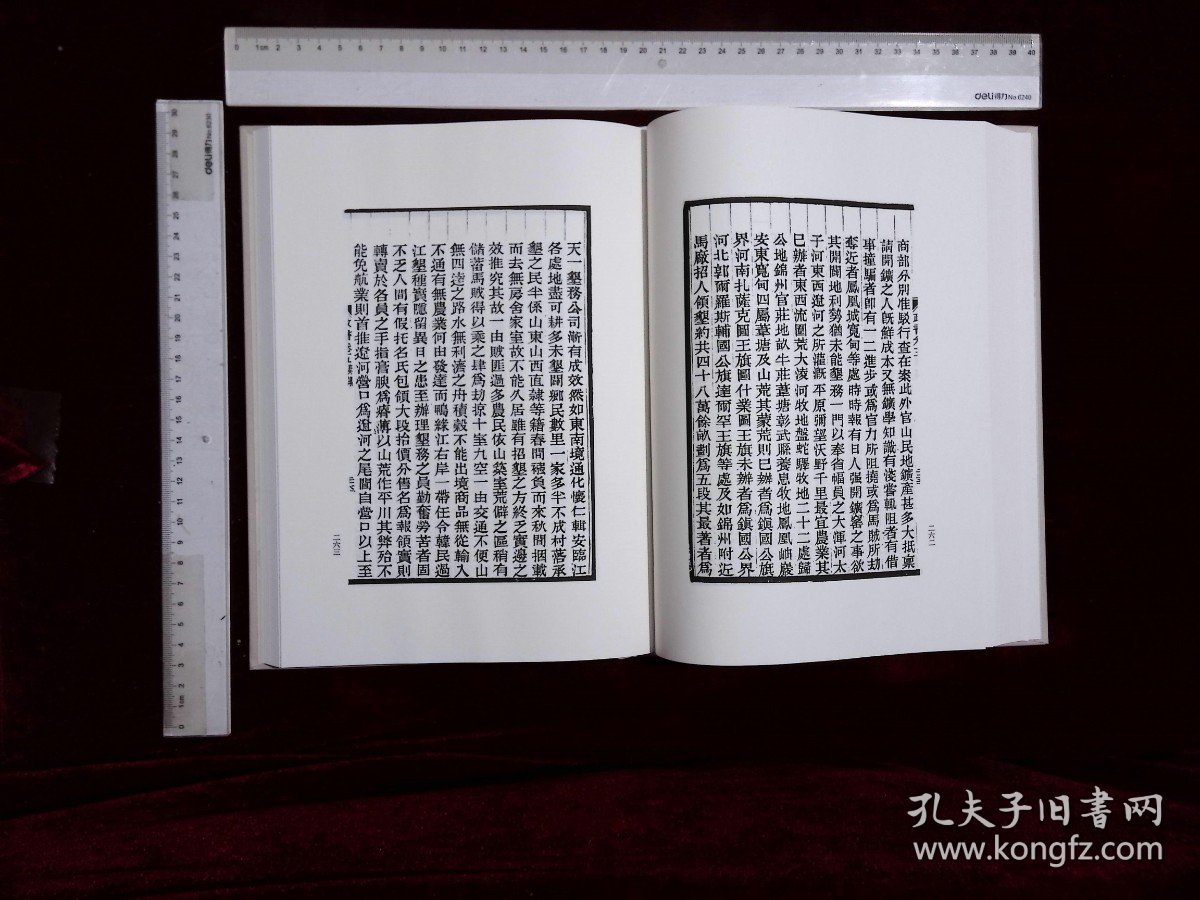 商部分別准駁行查在案此外官山民地鑛產甚多大抵稟
請開鑛之人旣鮮成本又無鑛學知識有淺嘗輒阻者有借
事撞騙者卽有一二進步或爲官力所阻撓或爲馬賊所劫
奪近者鳳凰城寬甸等處時時報有日人强開鑛窰之事欲
其開闢地利勢猶未能墾務一門以奉省幅員之大渾河太
子河東西遼河之所灌漑平原彌望沃野千里最宜農業其
已辦者東西流圍荒大凌河牧地盤蛇驛牧地二十二處歸
公地錦州官莊地畝牛莊葦塘彰武縣養息牧地鳳凰岫巖
安東寬甸四屬葦塘及山荒其蒙荒則已辦者爲鎭國公旗
界河南扎薩克圖王旗圖什業圖王旗未辦者爲鎭國公界
河北郭爾羅斯輔國公旗達爾罕王旗等處及如錦州附近
馬廠招人領墾約共四十八萬餘畝劃爲五段其最著者爲
二六二
天一墾務公司漸有成效然如東南境通化懷仁輯安臨江
各處地盡可耕多未墾闢鄉民數里一家多半不成村落承
墾之民半係山東山西直隸等籍春間襁負而來秋間捆載
而去無房舍家室故不能久居雖有招墾之方終乏實邊之
效推究其故一由賊匪過多農民依山築室荒僻之區稍有
儲蓄馬賊得以乘之肆爲劫掠十室九空一由交通不便山
無四逵之路水無利濟之舟積穀不能出境商品無從輸入
不通有無農業何由發達而鴨綠江右岸一帶任令韓民過
江墾種實隱留異日之患至辦理墾務之員勤奮勞苦者固
不乏人間有假托名氏包領大段抬價分售名爲報領實則
轉賣於各員之手指膏腴爲瘠薄以山荒作平川其弊殆不
能免航業則首推遼河營口爲遼河之尾閭自營口以上至
二六三
deli得力 No.6240
deli得力 No.6230
孔夫子旧书网
www.kongfz.com